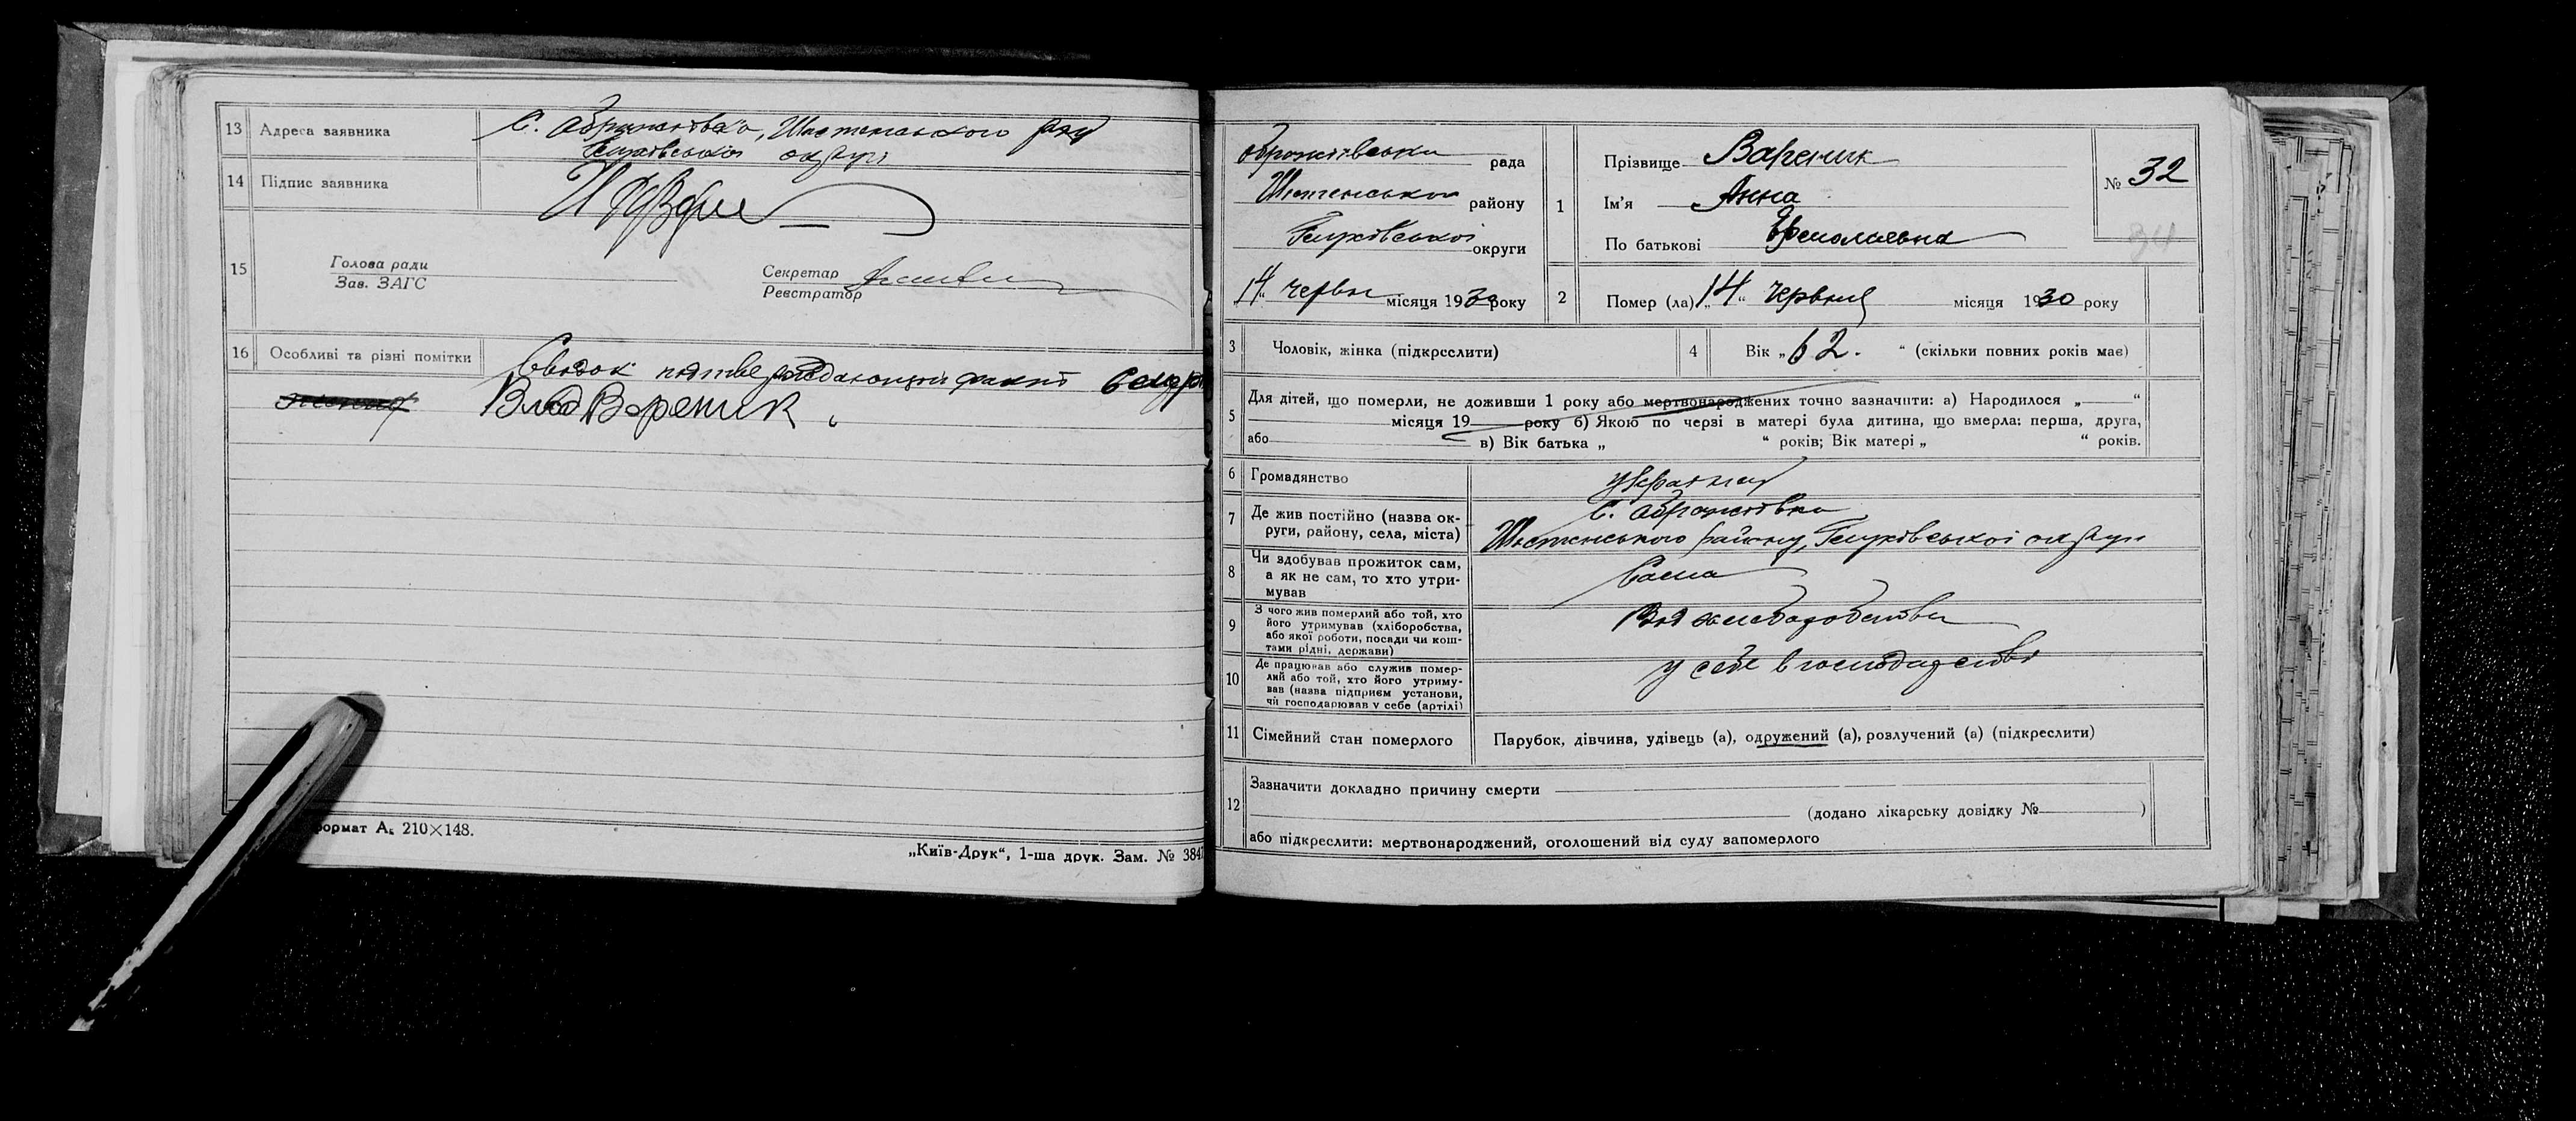 13 Адреса заявника С. Ображіївка, Шостенського р-ну
Глухівської округи
14 Підпис заявника
15 Голова ради
Зав. ЗАГС
Секретар
Реєстратор
16 Особливі та різні помітки
Свідок подтверждающий факт смерт
Вареник
формат А₅ 210×148.
„Київ-Друк“, 1-ша друк. Зам. № 3847
Ображіївська рада
Шостенського району
Глухівської округи
„14“ червня місяця 1930 року
1 Прізвище Вареник
Ім'я Анна
По батькові
№ 32
34
2 Помер (ла) „14“ червня місяця 1930 року
3 Чоловік, жінка (підкреслити)
4 Вік „62.“ (скільки повних років має)
5 Для дітей, що померли, не доживши 1 року або мертвонароджених точно зазначити: а) Народилося „ “
місяця 19 року б) Якою по черзі в матері була дитина, що вмерла: перша, друга,
або в) Вік батька „ “ років; Вік матері „ “ років.
6 Громадянство українка
7 Де жив постійно (назва ок-
руги, району, села, міста)
С. Ображіївка
Шостенського району, Глухівської округи
8 Чи здобував прожиток сам,
а як не сам, то хто утри-
мував
Сама
9 З чого жив померлий або той, хто
його утримував (хліборобства,
або якої роботи, посади чи кош-
тами рідні, держави)
Від хлеборобства
10 Де працював або служив помер-
лий або той, хто його утриму-
вав (назва підприєм установи,
чи господарював у себе (артілі)
у себе в господарстві
11 Сімейний стан померлого
Парубок, дівчина, удівець (а), одружений (а), розлучений (а) (підкреслити)
12 Зазначити докладно причину смерти
(додано лікарську довідку № )
або підкреслити: мертвонароджений, оголошений від суду запомерлого